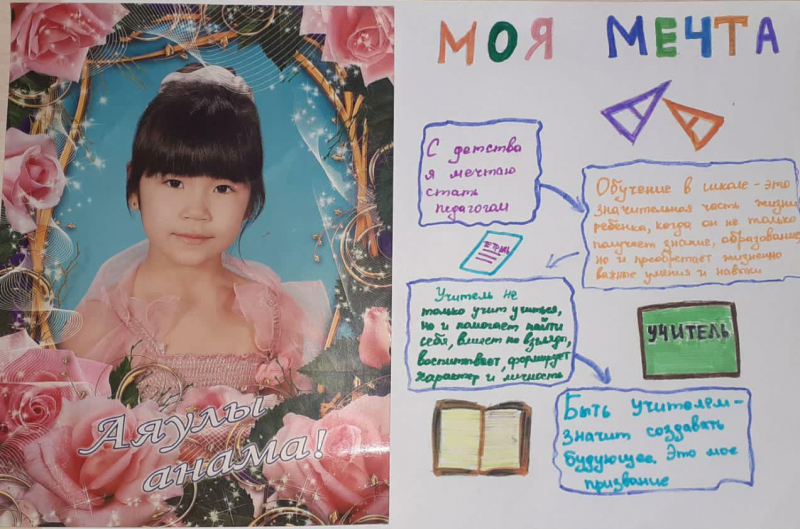 Аяулы
анама!
МОЯ МЕЧТА
С детства
я мечтаю
стать
педагогом
Обучение в школе - это
значительная часть жизни
ребёнка, когда он не только
получает знание, образование,
но и преобретает жизненно
важное умения и навыки
Учитель не
только учит учиться,
но и помогает найти
себя, влияет на взгляды,
воспитывает, формирует
характер и личность
УЧИТЕЛЬ
Быть учителем-
значит создавать
будующее. Это мое
призвание